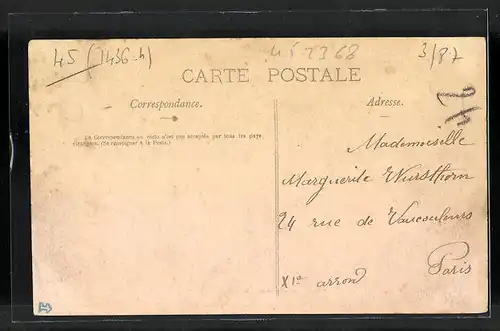 45 (1436-h)
452368
3/87
CARTE POSTALE
Correspondance.
Adresse.
La Correspondance au recto n'est pas acceptée par tous les pays
étrangers. (Se renseigner à la Poste.)
Mademoiselle
Marguerite Wursthorn
24 rue de Vaucouleurs
Paris
XIe arrond